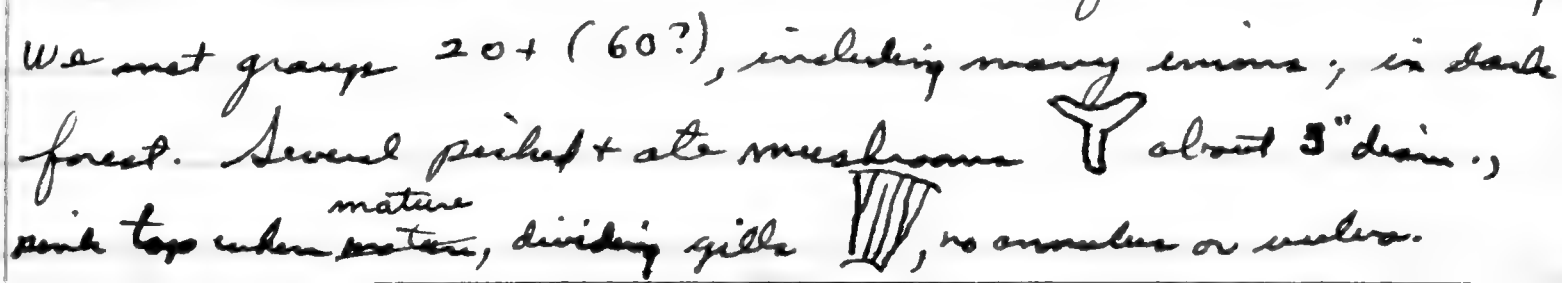 We met groups 20+ (60?), including many imms., in dark
forest. Several picked + ate mushrooms about 3" diam.,
mature
pink top when, dividing gills, no annulus or volva.